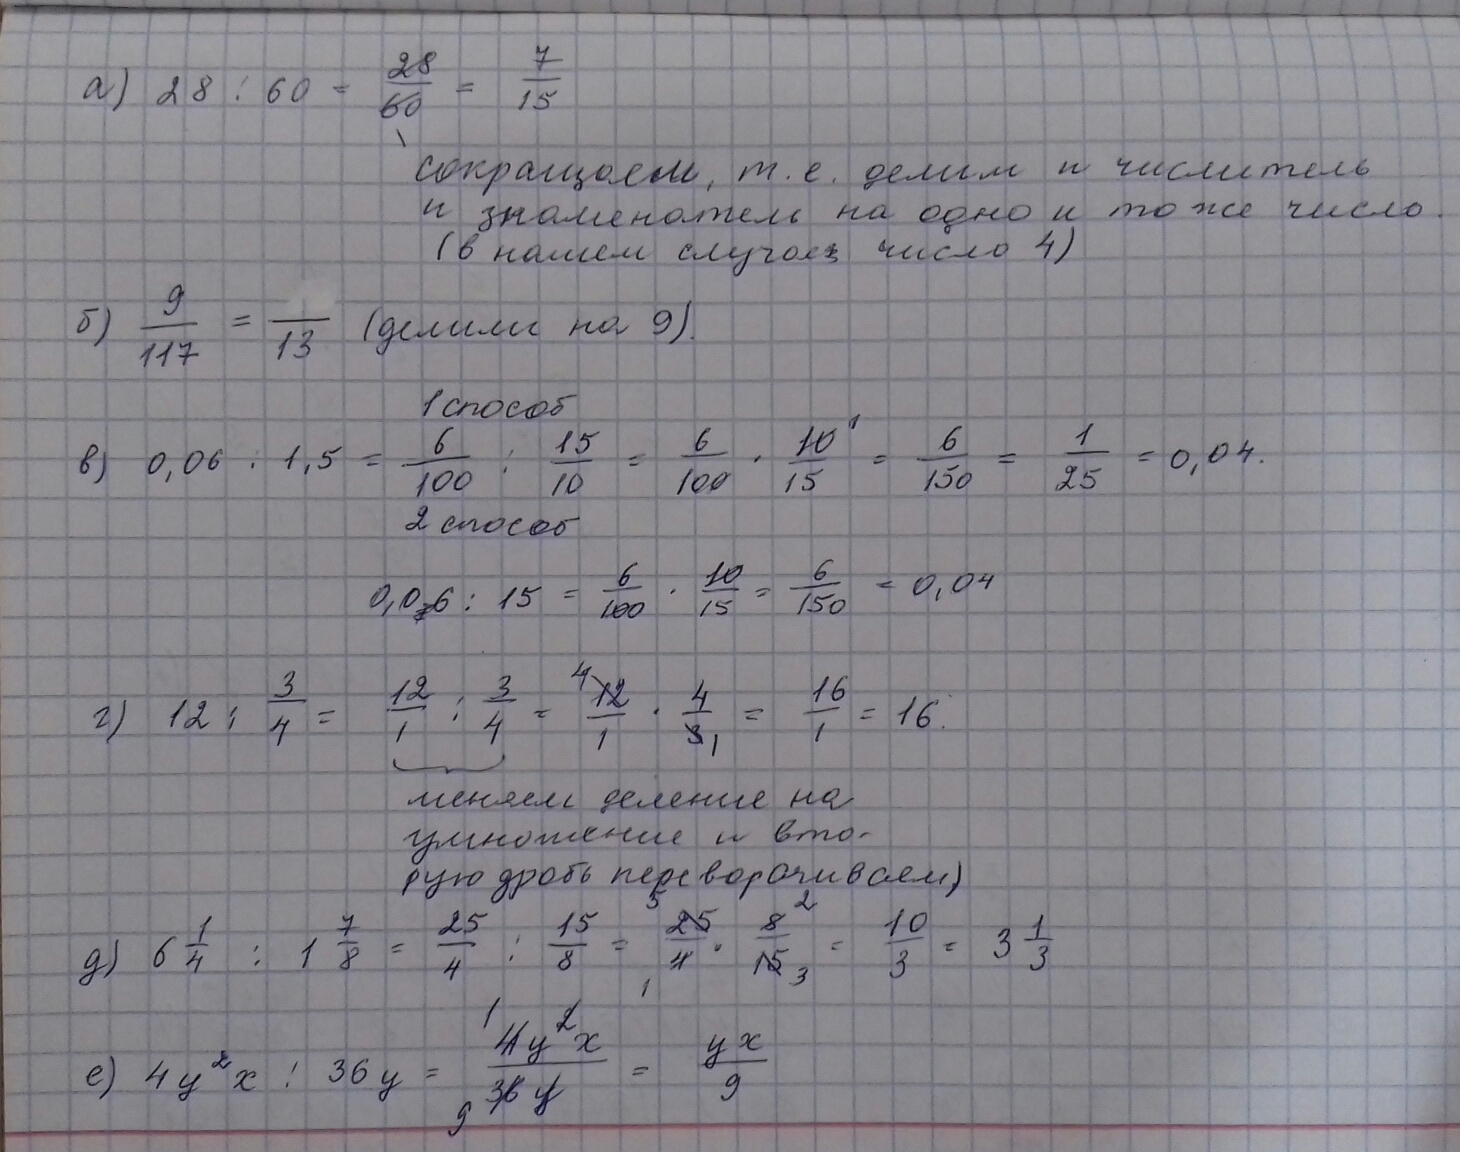 а) 28 : 60 = 28/60 = 7/15
сокращаем, т.е. делим и числитель
и знаменатель на одно и то же число.
(в нашем случае число 4)
б) 9/117 = 1/13 (делили на 9).
1 способ
в) 0,06 : 1,5 = 6/100 : 15/10 = 6/100 · 10/15 = 6/150 = 1/25 = 0,04.
2 способ
0,06 : 15 = 6/100 · 10/15 = 6/150 = 0,04
г) 12 : 3/4 = 12/1 : 3/4 = 12/1 · 4/3 = 16/1 = 16.
меняем деление на
умножение и вто-
рую дробь переворачиваем)
д) 6 1/4 : 1 7/8 = 25/4 : 15/8 = 25/4 · 8/15 = 10/3 = 3 1/3
е) 4y²x : 36y = 4y²x/36y = yx/9